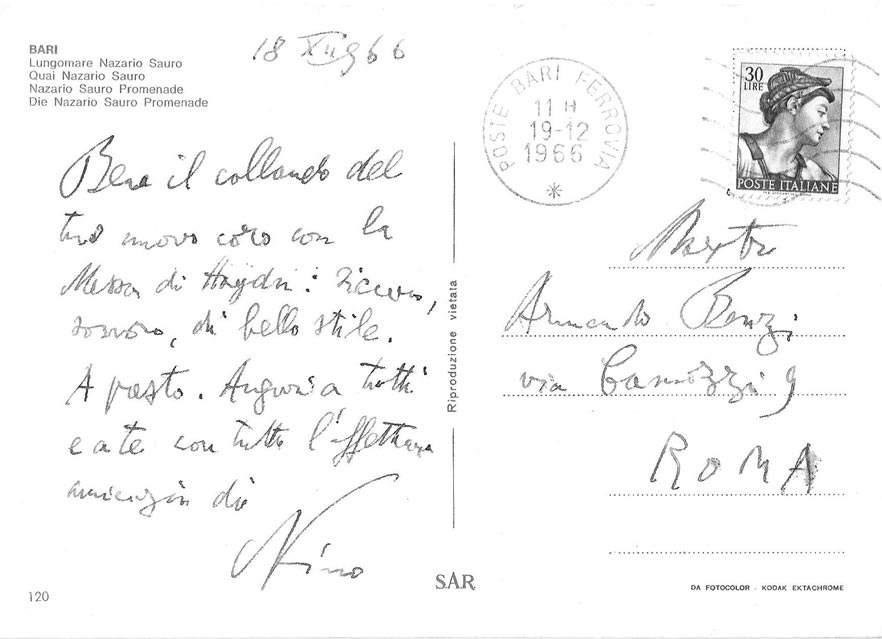 BARI
Lungomare Nazario Sauro
Quai Nazario Sauro
Nazario Sauro Promenade
Die Nazario Sauro Promenade
18 XII 966
Bene il collaudo del
tuo nuovo coro con la
Messa di Haydn: sicuro,
sonoro, di bello stile.
A presto. Auguri a tutti
e a te con tutta l'affettuosa
amicizia di
Nino
120
Riproduzione vietata
S.A.R.
POSTE BARI FERROVIA
11 H
19-12
1966
30
LIRE
POSTE ITALIANE
Maestro
Armando Renzi
via 9
ROMA
DA FOTOCOLOR - KODAK EKTACHROME